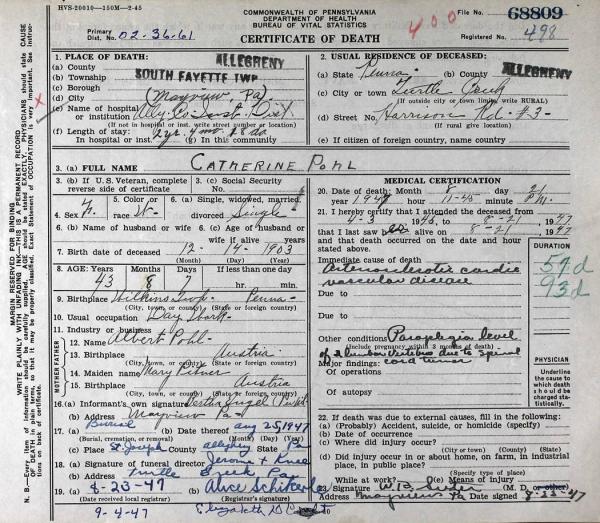 HVS-20010—150M—2-45
COMMONWEALTH OF PENNSYLVANIA
DEPARTMENT OF HEALTH
BUREAU OF VITAL STATISTICS
CERTIFICATE OF DEATH
Primary
Dist. No. 02-36-61
400
File No. 68809
Registered No. 498
1. PLACE OF DEATH:
(a) County ALLEGHENY
(b) Township SOUTH FAYETTE TWP
(c) Borough
(d) City (Mayview, Pa)
(e) Name of hospital
or institution Alley. Co. Inst. Dist.
(If not in hospital or inst. write street number or location)
(f) Length of stay:
In hospital or inst. 2 yr. 4 mo. 18 da (g) In this community
2. USUAL RESIDENCE OF DECEASED:
(a) State Penna. (b) County ALLEGHENY
(c) City or town Turtle Creek
(If outside city or town limits, write RURAL)
(d) Street No. Harrison Rd #3-
(If rural give location)
(e) If citizen of foreign country, name country
3. (a) FULL NAME CATHERINE POHL
3. (b) If U.S. Veteran, complete
reverse side of certificate
3. (c) Social Security
No.
4. Sex F.
5. Color or
race W-
6. (a) Single, widowed, married,
divorced Single
6. (b) Name of husband or wife
6. (c) Age of husband or
wife if alive years
7. Birth date of deceased 12 - 14 - 1903
(Month) (Day) (Year)
8. AGE: Years Months Days If less than one day
43 8 7 hr. min.
9. Birthplace Wilkins Twp. Penna-
(City, town, or county) (State or foreign country)
10. Usual occupation Day Work-
11. Industry or business
FATHER
12. Name Albert Pohl-
13. Birthplace Austria-
(City, town, or county) (State or foreign country)
MOTHER
14. Maiden name Mary
15. Birthplace Austria
(City, town, or county) (State or foreign country)
16. (a) Informant's own signature
(b) Address Mayview Pa
17. (a) Burial (b) Date thereof Aug 25, 1947
(Burial, cremation, or removal) (Month) (Day) (Year)
(c) Place St. Joseph Allegheny Pa
(City, town or county) (State)
18. (a) Signature of funeral director Jerome +
(b) Address Turtle Creek Pa
19. (a) 8-23-47 (b) Alice
(Date received local registrar) (Registrar's signature)
9-4-47 Elizabeth D
MEDICAL CERTIFICATION
20. Date of death: Month 8 day 21
year 1947 hour 11-45 minute P.M.
21. I hereby certify that I attended the deceased from
4-3 1945, to 8-21 1947
that I last saw her alive on 8-21 1947
and that death occurred on the date and hour
stated above.
DURATION
Immediate cause of death
Arteriosclerotic cardio
vascular disease
57d
93d
Due to
Due to
Other conditions Paraplegia level
(Include pregnancy within 3 months of death)
of 2 lumbar vertebra due to spinal
cord tumor
Major findings:
Of operations
Of autopsy
PHYSICIAN
Underline
the cause to
which death
should be
charged sta-
tistically.
22. If death was due to external causes, fill in the following:
(a) (Probably) Accident, suicide, or homicide (specify)
(b) Date of occurrence
(c) Where did injury occur?
(City or town) (County) (State)
(d) Did injury occur in or about home, on farm, in industrial
place, in public place?
(Specify type of place)
While at work? (e) Means of injury
23. Signature W.B. (M. D. or other)
Address Mayview Pa Date signed 8-23-47
MARGIN RESERVED FOR BINDING
WRITE PLAINLY, WITH UNFADING INK—THIS IS A PERMANENT RECORD